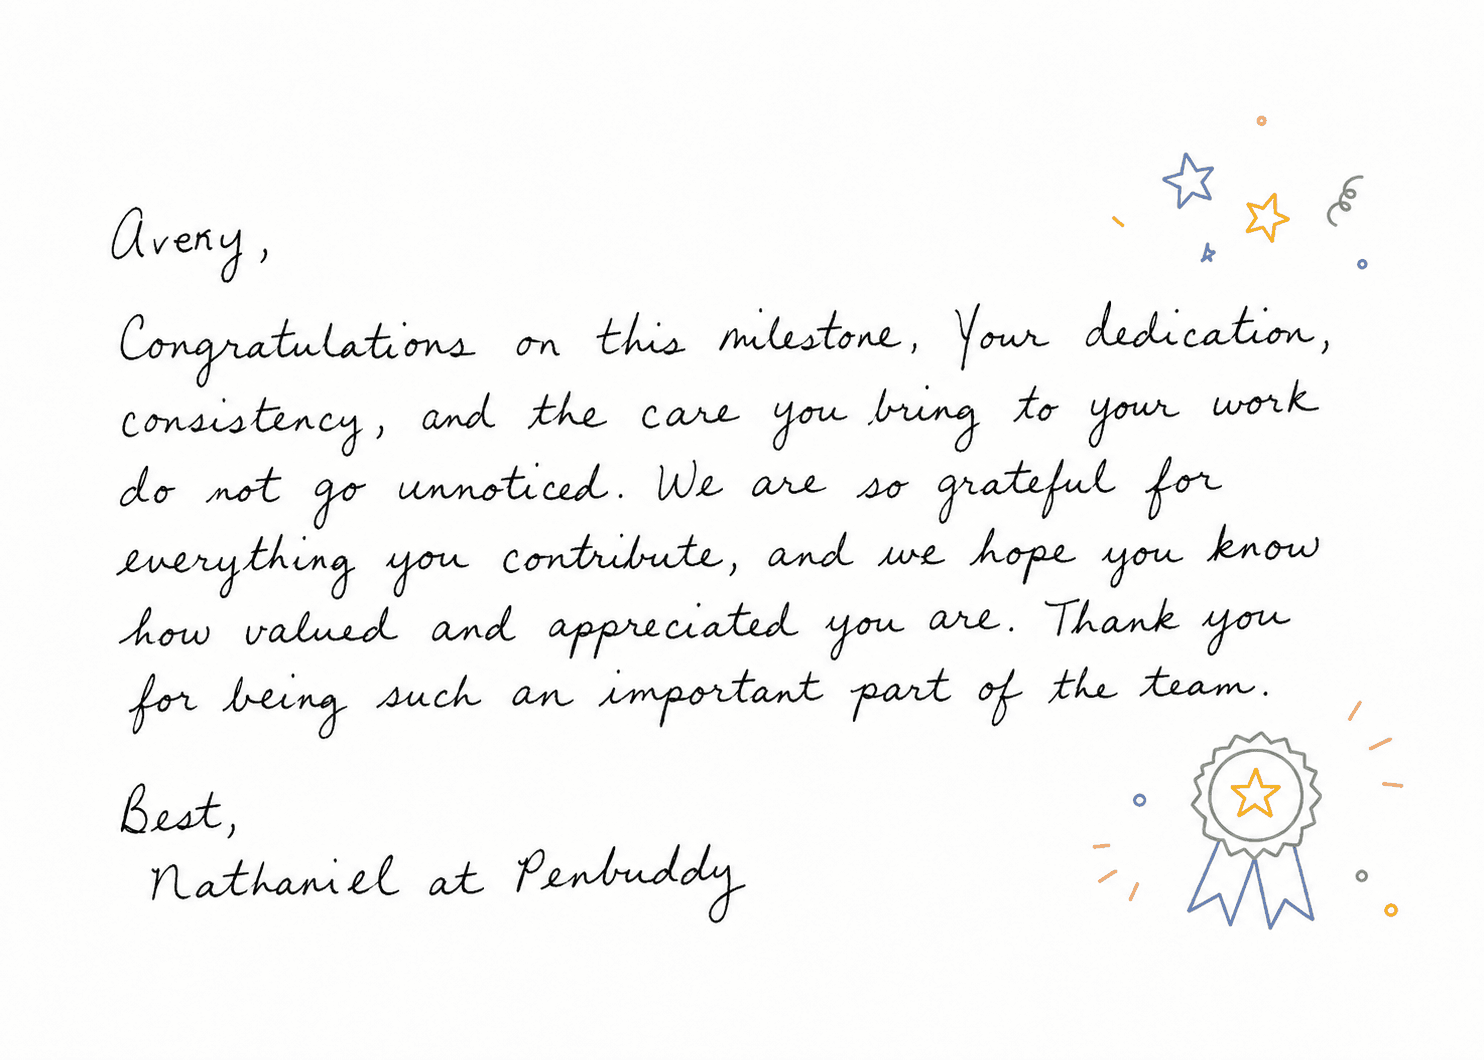 Avery,
Congratulations on this milestone, Your dedication,
consistency, and the care you bring to your work
do not go unnoticed. We are so grateful for
everything you contribute, and we hope you know
how valued and appreciated you are. Thank you
for being such an important part of the team.
Best,
Nathaniel at Penbuddy